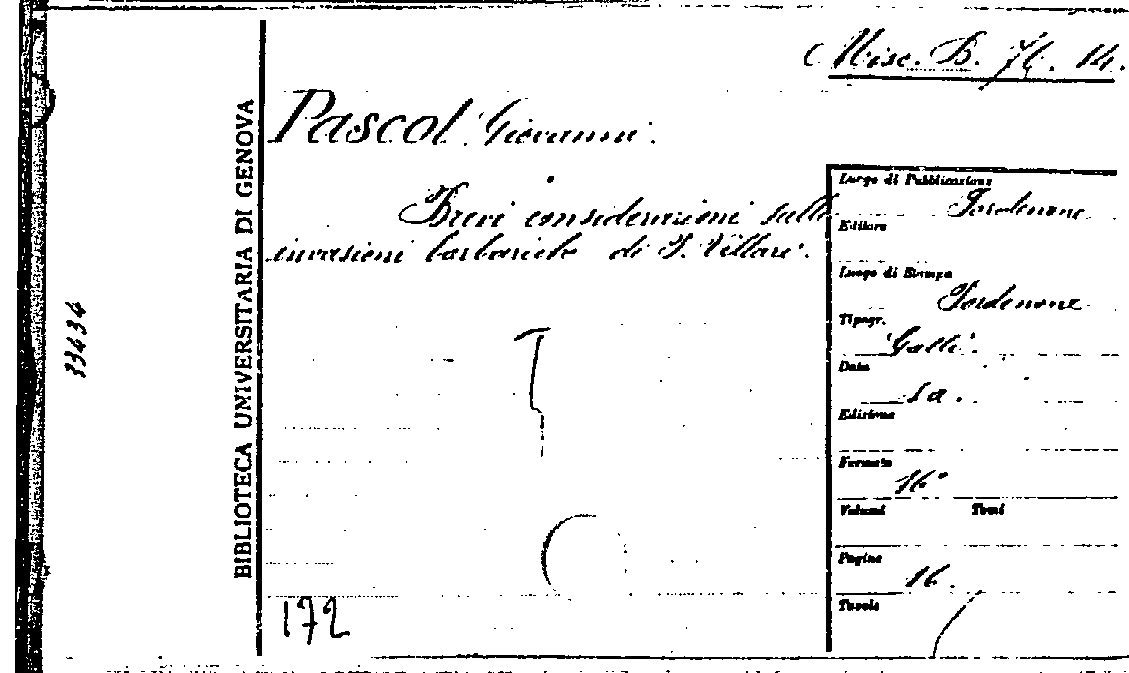 Misc. B. 76. 14.
Pascol Giovanni.
Brevi considerazioni sulle
invasioni barbariche di P. Villari.
BIBLIOTECA UNIVERSITARIA DI GENOVA
33434
Luogo di Pubblicazione
Pordenone
Editore
Luogo di Stampa
Pordenone
Tipogr.
Gatti.
Data
s.a.
Edizione
Formato
16°
Volumi Tomi
Pagine
16.
Tavole
172